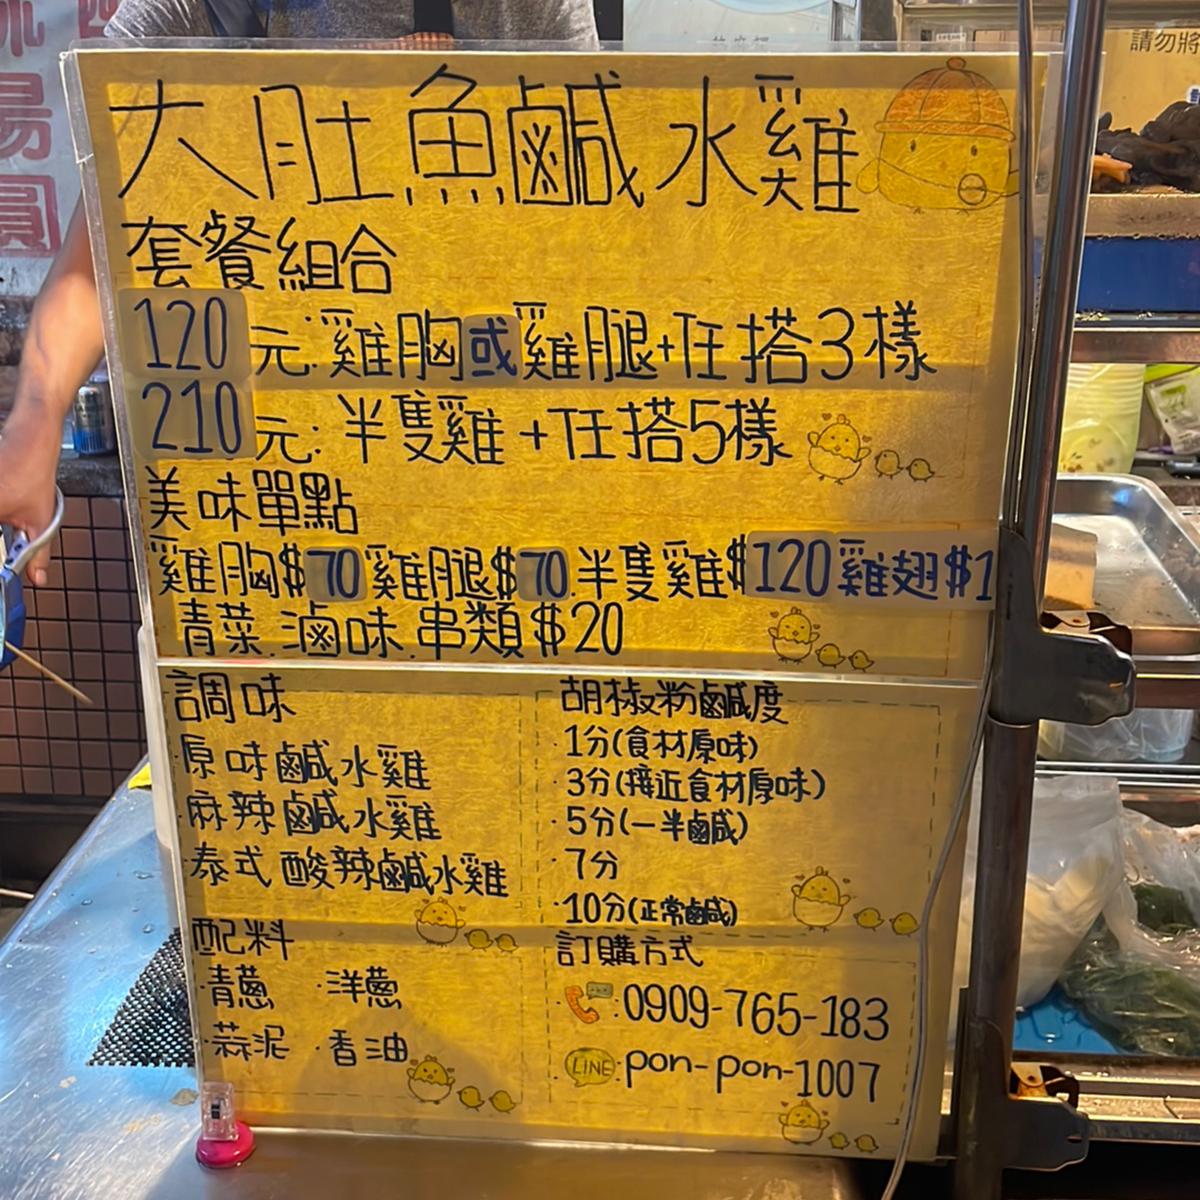 請勿將
大肚魚鹹水雞
套餐組合
120元:雞胸或雞腿+任搭3樣
210元:半隻雞+任搭5樣
美味單點
雞胸$70雞腿$70.半隻雞$120雞翅$1
青菜.滷味.串類$20
調味
·原味鹹水雞
·麻辣鹹水雞
·泰式酸辣鹹水雞
胡椒粉鹹度
·1分(食材原味)
·3分(接近食材原味)
·5分(一半鹹)
·7分
·10分(正常鹹)
配料
·青蔥 ·洋蔥
·蒜泥 ·香油
訂購方式
:0909-765-183
LINE:pon-pon-1007